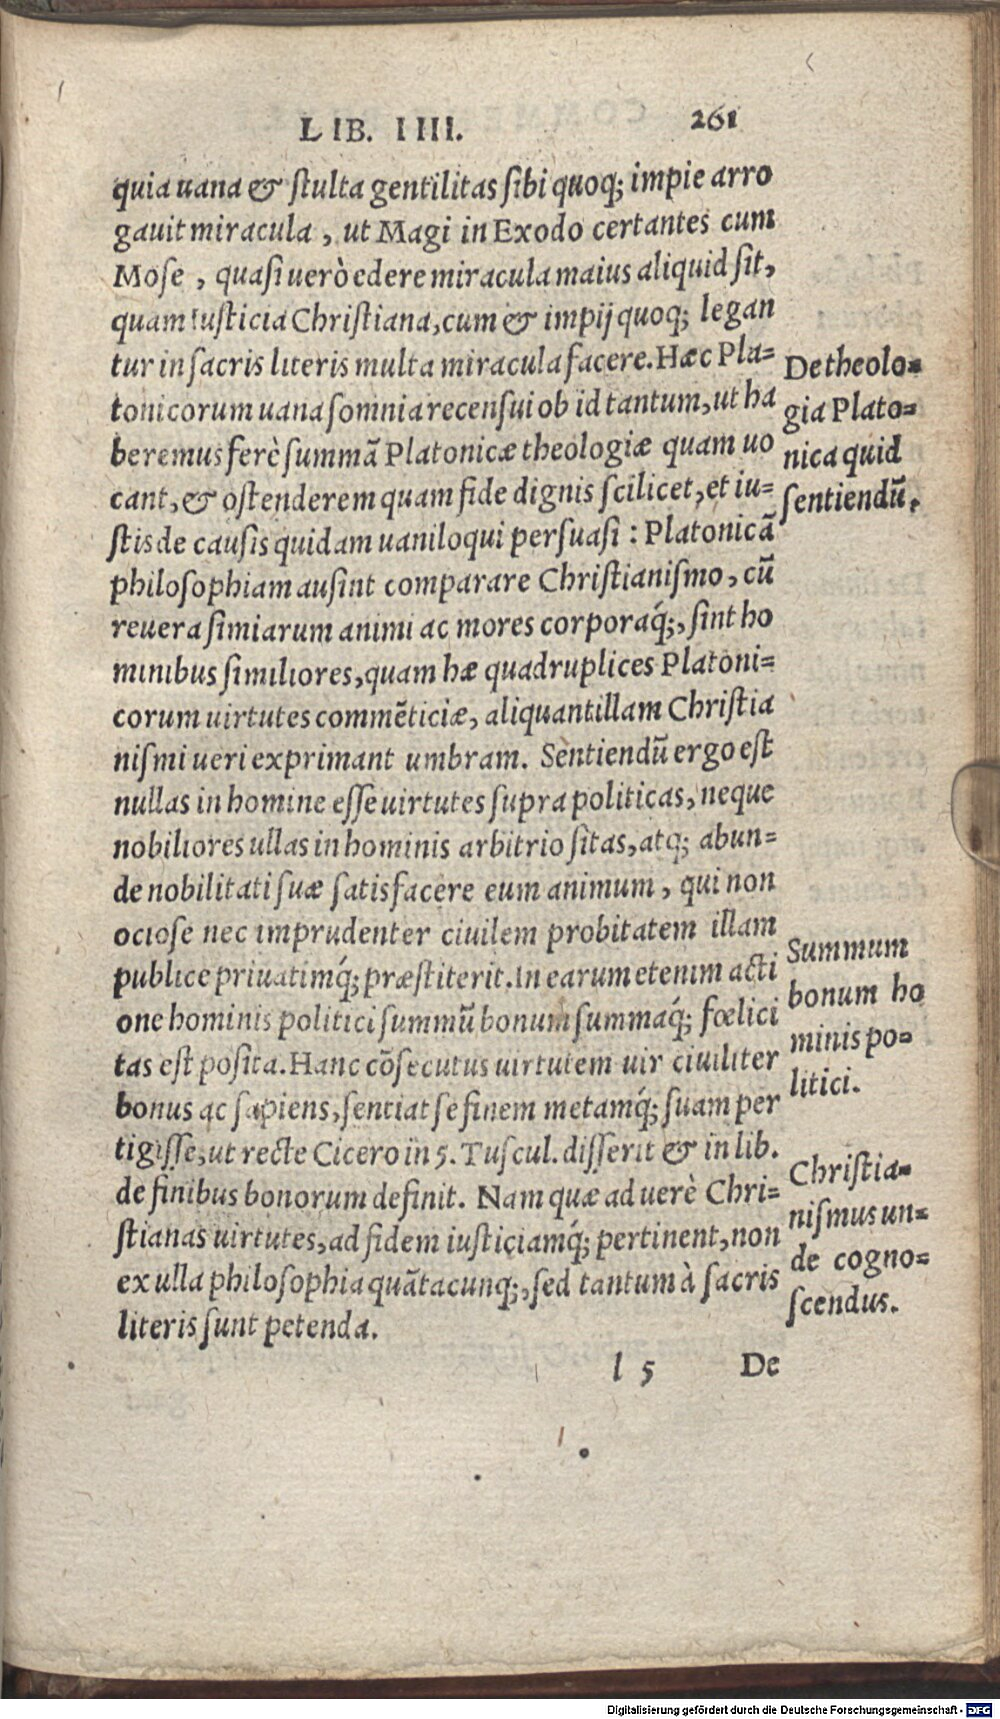 LIB. IIII. 261
quia uana & ſtulta gentilitas ſibi quoq; impie arro
gauit miracula, ut Magi in Exodo certantes cum
Moſe, quaſi uerò edere miracula maius aliquid ſit,
quam iuſticia Chriſtiana, cum & impij quoq; legan
tur in ſacris literis multa miracula facere. Hæc Pla-
tonicorum uana ſomnia recenſui ob id tantum, ut ha
beremus ferè ſummã Platonicæ theologiæ quam uo
cant, & oſtenderem quam fide dignis ſcilicet, et iu-
ſtis de cauſis quidam uaniloqui perſuaſi: Platonicã
philoſophiam auſint comparare Chriſtianiſmo, cũ
reuera ſimiarum animi ac mores corporaq́;, ſint ho
minibus ſimiliores, quam hæ quadruplices Platoni-
corum uirtutes commẽticiæ, aliquantillam Chriſtia
niſmi ueri exprimant umbram. Sentiendũ ergo eſt
nullas in homine eſſe uirtutes ſupra politicas, neque
nobiliores ullas in hominis arbitrio ſitas, atq; abun-
de nobilitati ſuæ ſatisfacere eum animum, qui non
ocioſe nec imprudenter ciuilem probitatem illam
publice priuatimq́; præſtiterit. In earum etenim acti
one hominis politici ſummũ bonum ſummaq́; fœlici
tas eſt poſita. Hanc cõſecutus uirtutem uir ciuiliter
bonus ac ſapiens, ſentiat ſe finem metamq́; ſuam per
tigiſſe, ut recte Cicero in 5. Tuſcul. diſſerit & in lib.
de finibus bonorum definit. Nam quæ ad uerè Chri-
ſtianas uirtutes, ad fidem iuſticiamq́; pertinent, non
ex ulla philoſophia quãtacunq;, ſed tantum à ſacris
literis ſunt petenda.
l 5 De
De theolo-
gia Plato-
nica quid
ſentiendũ.
Summum
bonum ho
minis po-
litici.
Chriſtia-
niſmus un-
de cogno-
ſcendus.
Digitalisierung gefördert durch die Deutsche Forschungsgemeinschaft - DFG